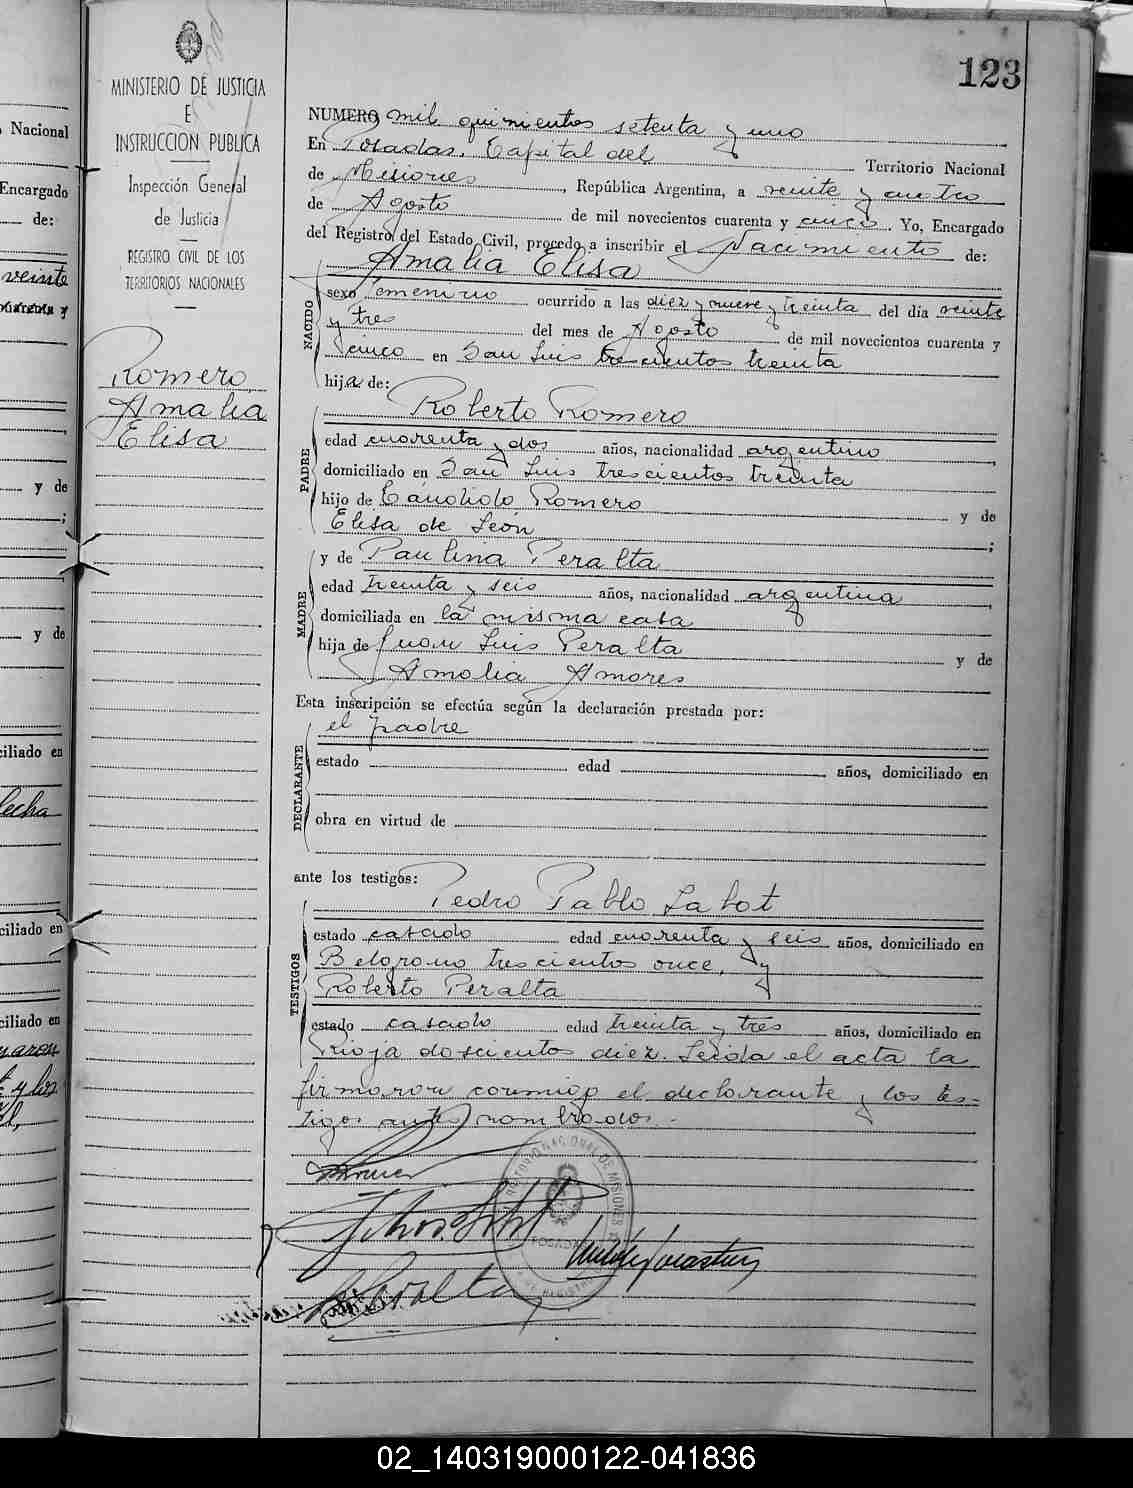 123
MINISTERIO DE JUSTICIA
E
INSTRUCCION PUBLICA
Inspección General
de Justicia
REGISTRO CIVIL DE LOS
TERRITORIOS NACIONALES
Romero
Amalia
Elisa
NUMERO mil quinientos setenta y uno
En Posadas, Capital del Territorio Nacional
de Misiones, República Argentina, a veinte y cuatro
de Agosto de mil novecientos cuarenta y cinco. Yo, Encargado
del Registro del Estado Civil, procedo a inscribir el Nacimiento de:
Amalia Elisa
NACIDO
sexo femenino ocurrido a las diez y nueve y treinta del día veinte
y tres del mes de Agosto de mil novecientos cuarenta y
cinco en San Luis trescientos treinta
hija de:
Roberto Romero
PADRE
edad cuarenta y dos años, nacionalidad argentino,
domiciliado en San Luis trescientos treinta
hijo de Cándido Romero y de
Elisa de León;
y de Paulina Peralta
MADRE
edad treinta y seis años, nacionalidad argentina,
domiciliada en la misma casa
hija de Juan Luis Peralta y de
Amalia Amores
Esta inscripción se efectúa según la declaración prestada por:
el padre
DECLARANTE
estado edad años, domiciliado en
obra en virtud de
ante los testigos:
Pedro Pablo Labat
TESTIGOS
estado casado edad cuarenta y seis años, domiciliado en
Belgrano trescientos once, y
Roberto Peralta
estado casado edad treinta y tres años, domiciliado en
Rioja doscientos diez. Leida el acta la
firmaron conmigo el declarante y los tes-
tigos antes nombrados.-
Nacional
Encargado
de:
veinte
y de
;
y de
ciliado en
fecha
ciliado en
ciliado en
y los
02_140319000122-041836